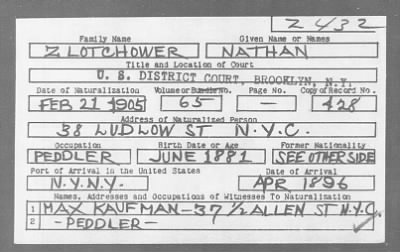 Z 432
Family Name Given Name or Names
ZLOTCHOWER NATHAN
Title and Location of Court
U. S. DISTRICT COURT, BROOKLYN, N.Y.
Date of Naturalization Volume or Bundle No. Page No. Copy of Record No.
FEB 21 1905 65 — 428
Address of Naturalized Person
38 LUDLOW ST N.Y.C.
Occupation Birth Date or Age Former Nationality
PEDDLER JUNE 1881 SEE OTHER SIDE
Port of Arrival in the United States Date of Arrival
N.Y.N.Y. APR 1896
Names, Addresses and Occupations of Witnesses To Naturalization
1 MAX KAUFMAN-37 ½ ALLEN ST N.Y.C.
2 -PEDDLER-